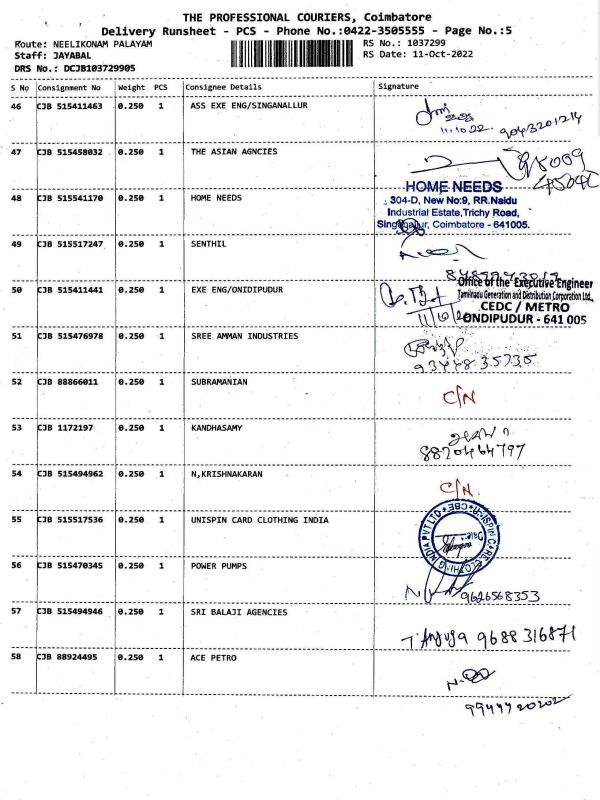 THE PROFESSIONAL COURIERS, Coimbatore
Delivery Runsheet - PCS - Phone No.:0422-3505555 - Page No.:5
Route: NEELIKONAM PALAYAM
RS No.: 1037299
Staff: JAYABAL
RS Date: 11-Oct-2022
DRS No.: DCJB103729905
S No Consignment No Weight PCS Consignee Details Signature
46 CJB 515411463 0.250 1 ASS EXE ENG/SINGANALLUR
11.10.22 9043201214
47 CJB 515458032 0.250 1 THE ASIAN AGNCIES
48 CJB 515541170 0.250 1 HOME NEEDS
HOME NEEDS
304-D, New No:9, RR.Naidu
Industrial Estate,Trichy Road,
Singanallur, Coimbatore - 641005.
49 CJB 515517247 0.250 1 SENTHIL
50 CJB 515411441 0.250 1 EXE ENG/ONIDIPUDUR
Office of the Executive Engineer
Tamilnadu Generation and Distribution Corporation Ltd.,
CEDC / METRO
ONDIPUDUR - 641 005
51 CJB 515476978 0.250 1 SREE AMMAN INDUSTRIES
93448 35735
52 CJB 88866011 0.250 1 SUBRAMANIAN
C/N
53 CJB 1172197 0.250 1 KANDHASAMY
8820464797
54 CJB 515494962 0.250 1 N,KRISHNAKARAN
C/N
55 CJB 515517536 0.250 1 UNISPIN CARD CLOTHING INDIA
56 CJB 515470345 0.250 1 POWER PUMPS
9626568353
57 CJB 515494946 0.250 1 SRI BALAJI AGENCIES
9688316871
58 CJB 88924495 0.250 1 ACE PETRO
9944720202